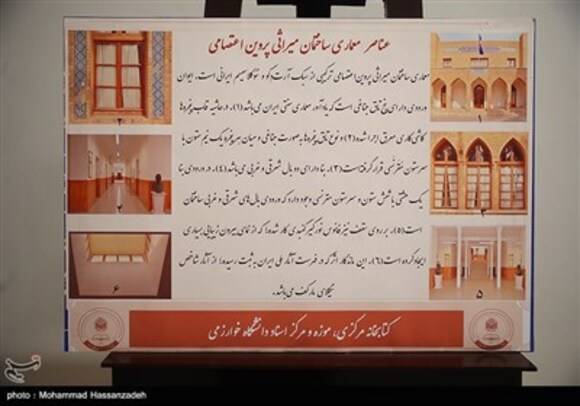 عناصر معماری ساختمان میراثی پروین اعتصامی
معماری ساختمان میراثی پروین اعتصامی ترکیبی از سبک آرت دکو و نئوکلاسیسم ایرانی است. ایوان
ورودی دارای پنج تاق جناغی است که یادآور معماری سنتی ایران می‌باشد(۱). در حاشیه قاب پنجره‌ها
کاشی‌کاری معرق اجرا شده(۲) و نوع تاق پنجره‌ها به صورت جناغی و میان هر پنجره یک نیم ستون با
سرستون مقرنسی قرار گرفته است(۳). بنا دارای دو بال شرقی و غربی می‌باشد(۴). در ورودی بنا
یک هشتی با شش ستون و سرستون مقرنسی وجود دارد که ورودی بال‌های شرقی و غربی ساختمان
است(۵). بر روی سقف نیز فانوس نورگیر گنبدی کار شده؛ که از نمای بیرون زیبایی بسیاری
ایجاد کرده است(۶). این ماندگار اثر که در فهرست آثار ملی ایران به ثبت رسیده؛ از آثار شاخص
نیکلای مارکف می‌باشد.
۱
۲
۳
۴
۵
۶
کتابخانه مرکزی، موزه و مرکز اسناد دانشگاه خوارزمی
photo : Mohammad Hassanzadeh